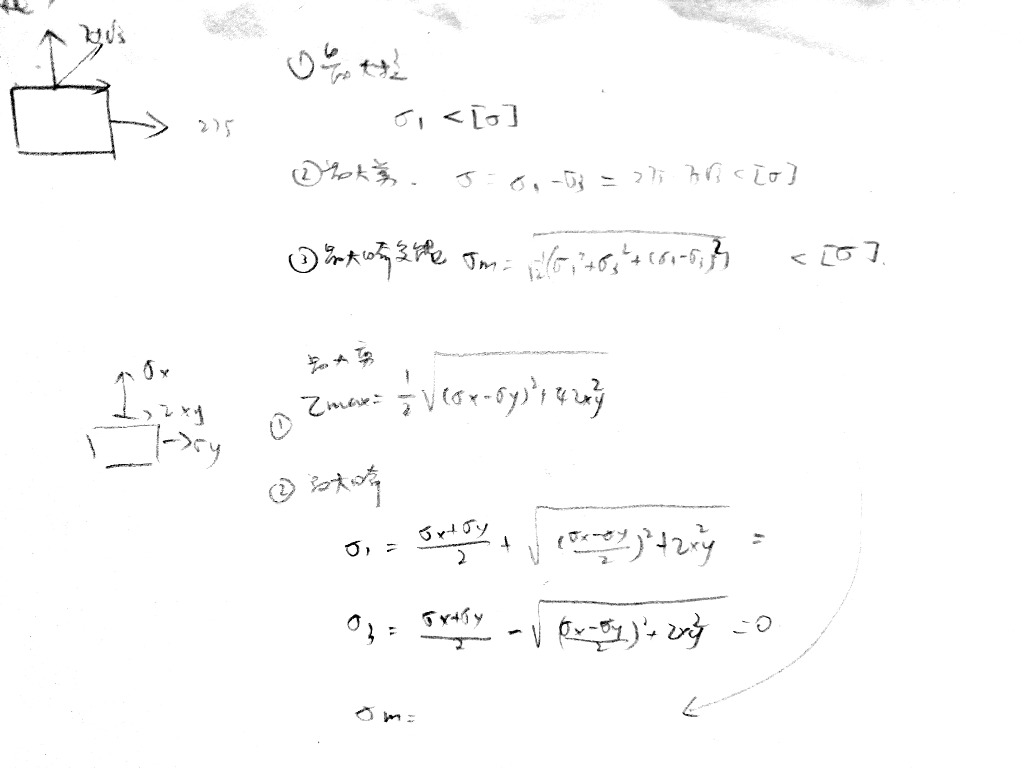 275
① 最大拉
σ₁ < [σ]
② 最大剪. σ = σ₁ - σ₃ = < [σ]
③ 最大 σm = √(½(σ₁² + σ₃² + (σ₁-σ₃)²)) < [σ].
σx
τxy
σy
最大剪
① τmax = ½√((σx-σy)² + 4τxy²)
② 最大
σ₁ = (σx+σy)/2 + √(((σx-σy)/2)² + τxy²) =
σ₃ = (σx+σy)/2 - √(((σx-σy)/2)² + τxy²) = 0
σm =